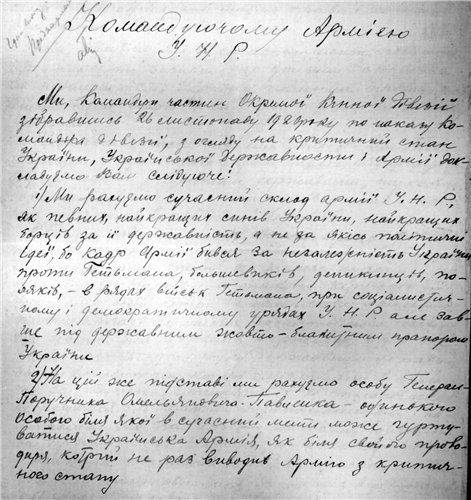 Командуючому Армією
У. Н. Р.
Ми, Командири частин Окремої Кінної Дівізії
зібравшись 26 листопаду 192 року по наказу Ко-
мандіра дівізії, з огляду на критичний стан
України, Української Державности і Армії док-
ладуємо Вам слідуюче:
1) Ми рахуємо сучасний склад армії У. Н. Р.
як певних, найкращих синів України, найкращих
борців за її державність, а не за якісь політичні
ідеї, бо кадр Армії бився за незалежність України
проти Гетьмана, большевиків, деникинців, по-
ляків, – в рядах військ Гетьмана, при соціалистич-
ному і демократичному урядах У. Н. Р але зав-
ше під державним жовто-блакитним прапором
України
2) На цій же підставі ми рахуємо особу Генерал-
Поручника Омельяновича-Павленка – одинокою
особою біля якої в сучасний мент може гурту-
ватися Українська Армія, як біля свойого прово-
диря, котрий не раз виводив Армію з критич-
ного стану